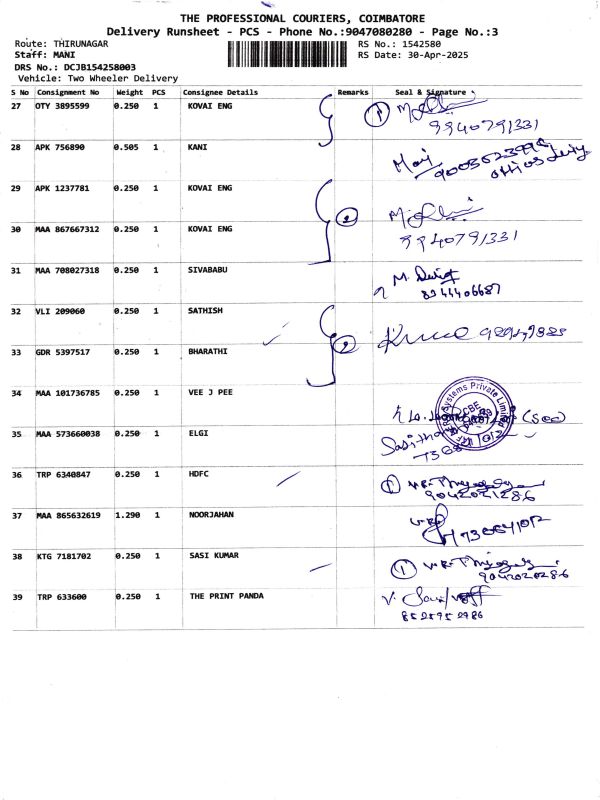 THE PROFESSIONAL COURIERS, COIMBATORE
Delivery Runsheet - PCS - Phone No.:9047080280 - Page No.:3
Route: THIRUNAGAR RS No.: 1542580
Staff: MANI RS Date: 30-Apr-2025
DRS No.: DCJB154258003
Vehicle: Two Wheeler Delivery
S No Consignment No Weight PCS Consignee Details Remarks Seal & Signature
27 OTY 3895599 0.250 1 KOVAI ENG 1
9940791331
28 APK 756890 0.505 1 KANI
29 APK 1237781 0.250 1 KOVAI ENG
30 MAA 867667312 0.250 1 KOVAI ENG 2
9940791331
31 MAA 708027318 0.250 1 SIVABABU
8344406687
32 VLI 209060 0.250 1 SATHISH
33 GDR 5397517 0.250 1 BHARATHI 2
34 MAA 101736785 0.250 1 VEE J PEE
35 MAA 573660038 0.250 1 ELGI
36 TRP 6340847 0.250 1 HDFC 1
9042021286
37 MAA 865632619 1.290 1 NOORJAHAN
38 KTG 7181702 0.250 1 SASI KUMAR 1
39 TRP 633600 0.250 1 THE PRINT PANDA